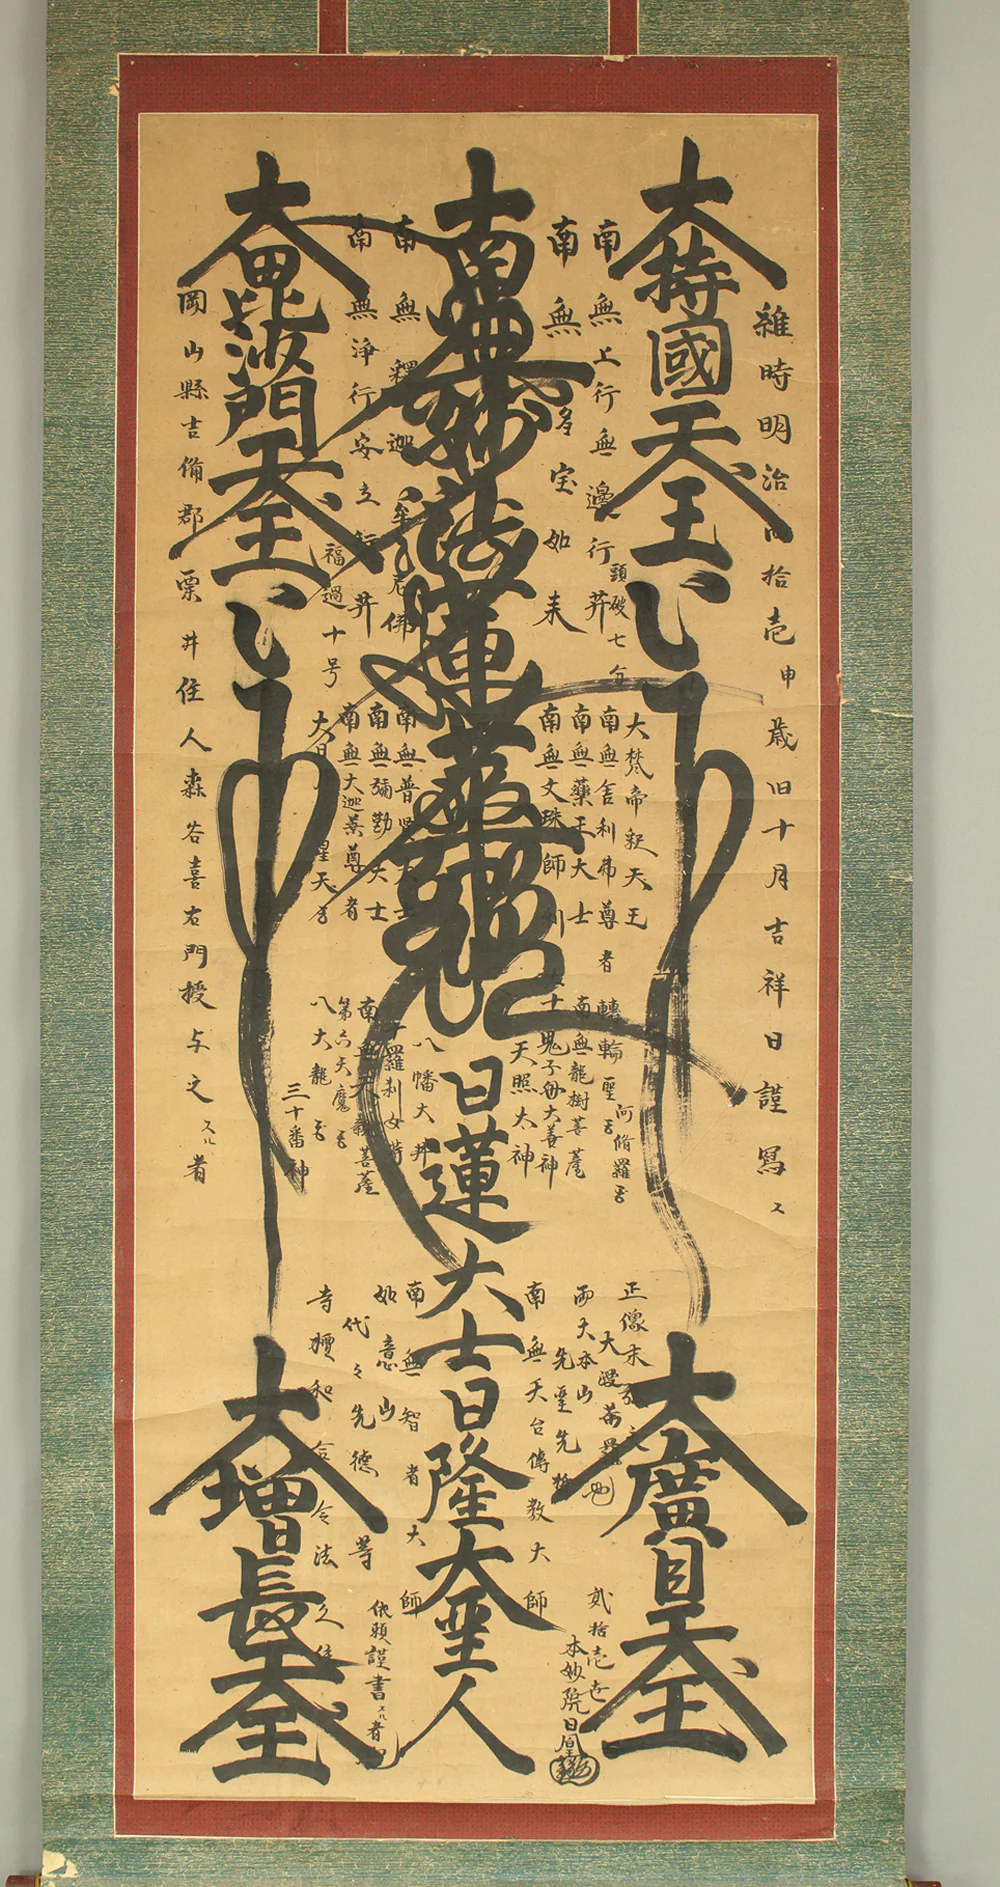 維時明治四拾壱申歳旧十月吉祥日謹写
大持國天王
南無上行無邊行菩
頭破七分
南無多宝如来
南無妙法蓮華経
南無釋迦牟尼佛
南無浄行安立行菩
福過十号
大毘沙門天王
岡山縣吉備郡
栗井住人森谷喜右門授与之
大梵帝釈天王
南無舎利弗尊者
南無藥王大士
南無文珠師利
南無普賢大士
南無彌勒大士
南無大迦葉尊者
転輪聖王
阿脩羅王
南無龍樹菩薩
鬼子母大善神
天照太神
日蓮大士日隆大聖人
八幡大菩
十羅刹女
第六天魔王
八大龍王
三十番神
大廣目天王
正像末
両大本山
先聖先哲
南無天台傳教大師
南無智者大師
如意山
代々先徳等
令法久住
大増長天王
貳拾壱世
本妙院日
依頼謹書